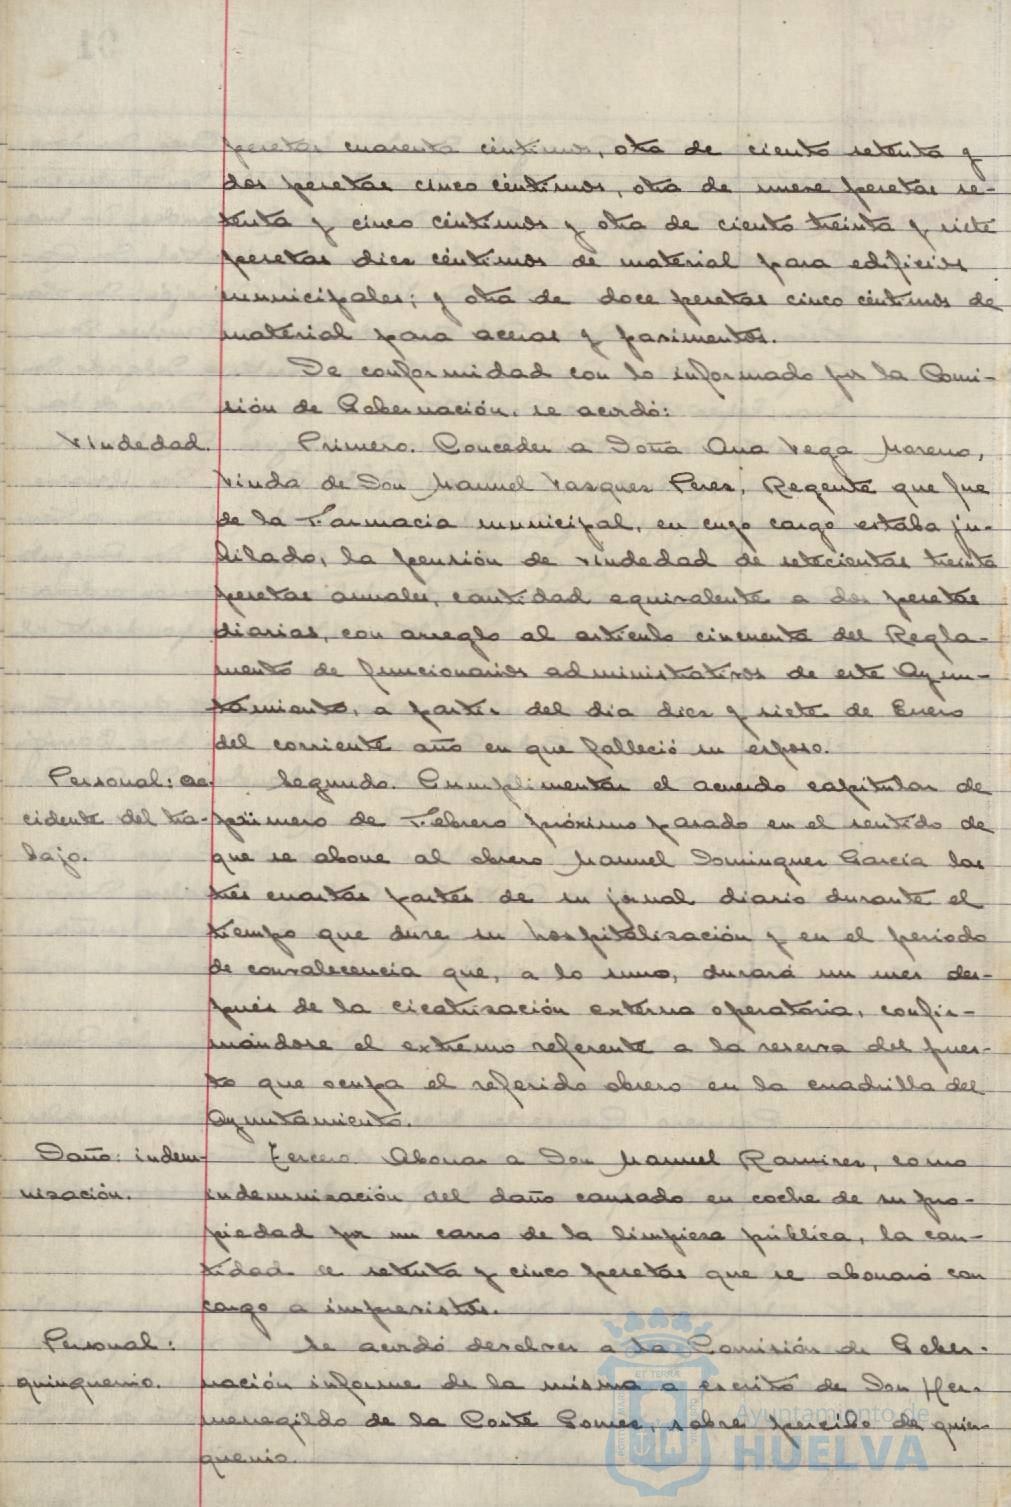 pesetas cuarenta céntimos, otra de ciento setenta y
dos pesetas cinco céntimos, otra de nueve pesetas se-
tenta y cinco céntimos y otra de ciento treinta y siete
pesetas diez céntimos de material para edificios
municipales; y otra de doce pesetas cinco céntimos de
material para aceras y pavimentos.
De conformidad con lo informado por la Comi-
sión de Gobernación, se acordó:
Viudedad.
Primero. Conceder a Doña Ana Vega Moreno,
viuda de Don Manuel Vasquez Perez, Regente que fue
de la Farmacia municipal, en cuyo cargo estaba ju-
bilado, la pensión de viudedad de setecientas treinta
pesetas anuales, cantidad equivalente a dos pesetas
diarias, con arreglo al artículo cincuenta del Regla-
mento de funcionarios administrativos de este Ayun-
tamiento, a partir del dia diez y siete de Enero
del corriente año en que falleció su esposo.
Personal: ac-
cidente del tra-
bajo.
Segundo. Cumplimentar el acuerdo capitular de
primero de Febrero próximo pasado en el sentido de
que se abone al obrero Manuel Dominguez García las
tres cuartas partes de su jornal diario durante el
tiempo que dure su hospitalización y en el periodo
de convalecencia que, a lo sumo, durará un mes des-
pués de la cicatrización externa operatoria, confir-
mándose el extremo referente a la reserva del pues-
to que ocupa el referido obrero en la cuadrilla del
Ayuntamiento.
Daño: indem-
nización.
Tercero. Abonar a Don Manuel Ramirez, como
indemnización del daño causado en coche de su pro-
piedad por un carro de la limpieza pública, la can-
tidad de setenta y cinco pesetas que se abonará con
cargo a imprevistos.
Personal:
quinquenio.
Se acordó devolver a la Comisión de Gober-
nación informe de la misma a escrito de Don Her-
menegildo de la Corte Gomez, sobre percibo de quin-
quenio.
Ayuntamiento de
HUELVA